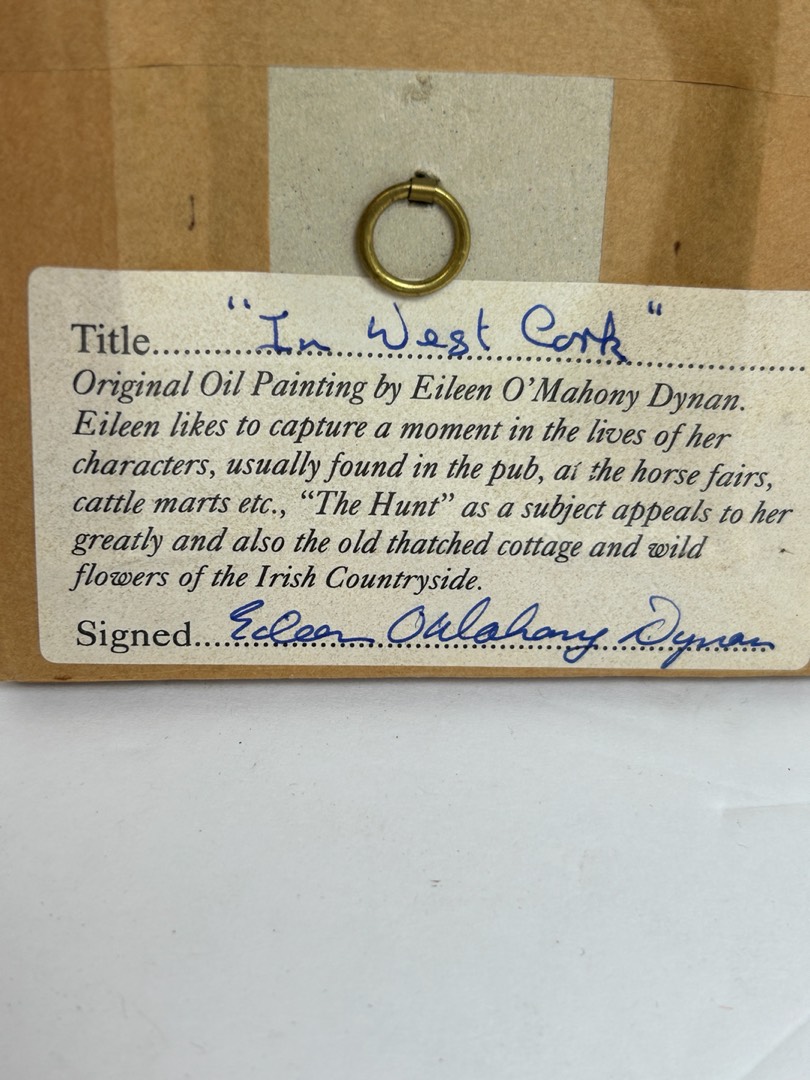 Title..........."In West Cork"..................
Original Oil Painting by Eileen O'Mahony Dynan.
Eileen likes to capture a moment in the lives of her
characters, usually found in the pub, at the horse fairs,
cattle marts etc., “The Hunt” as a subject appeals to her
greatly and also the old thatched cottage and wild
flowers of the Irish Countryside.
Signed...Eileen O'Mahony Dynan